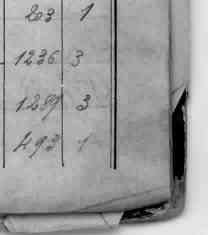 203 1
1236 3
1289 3
493 1